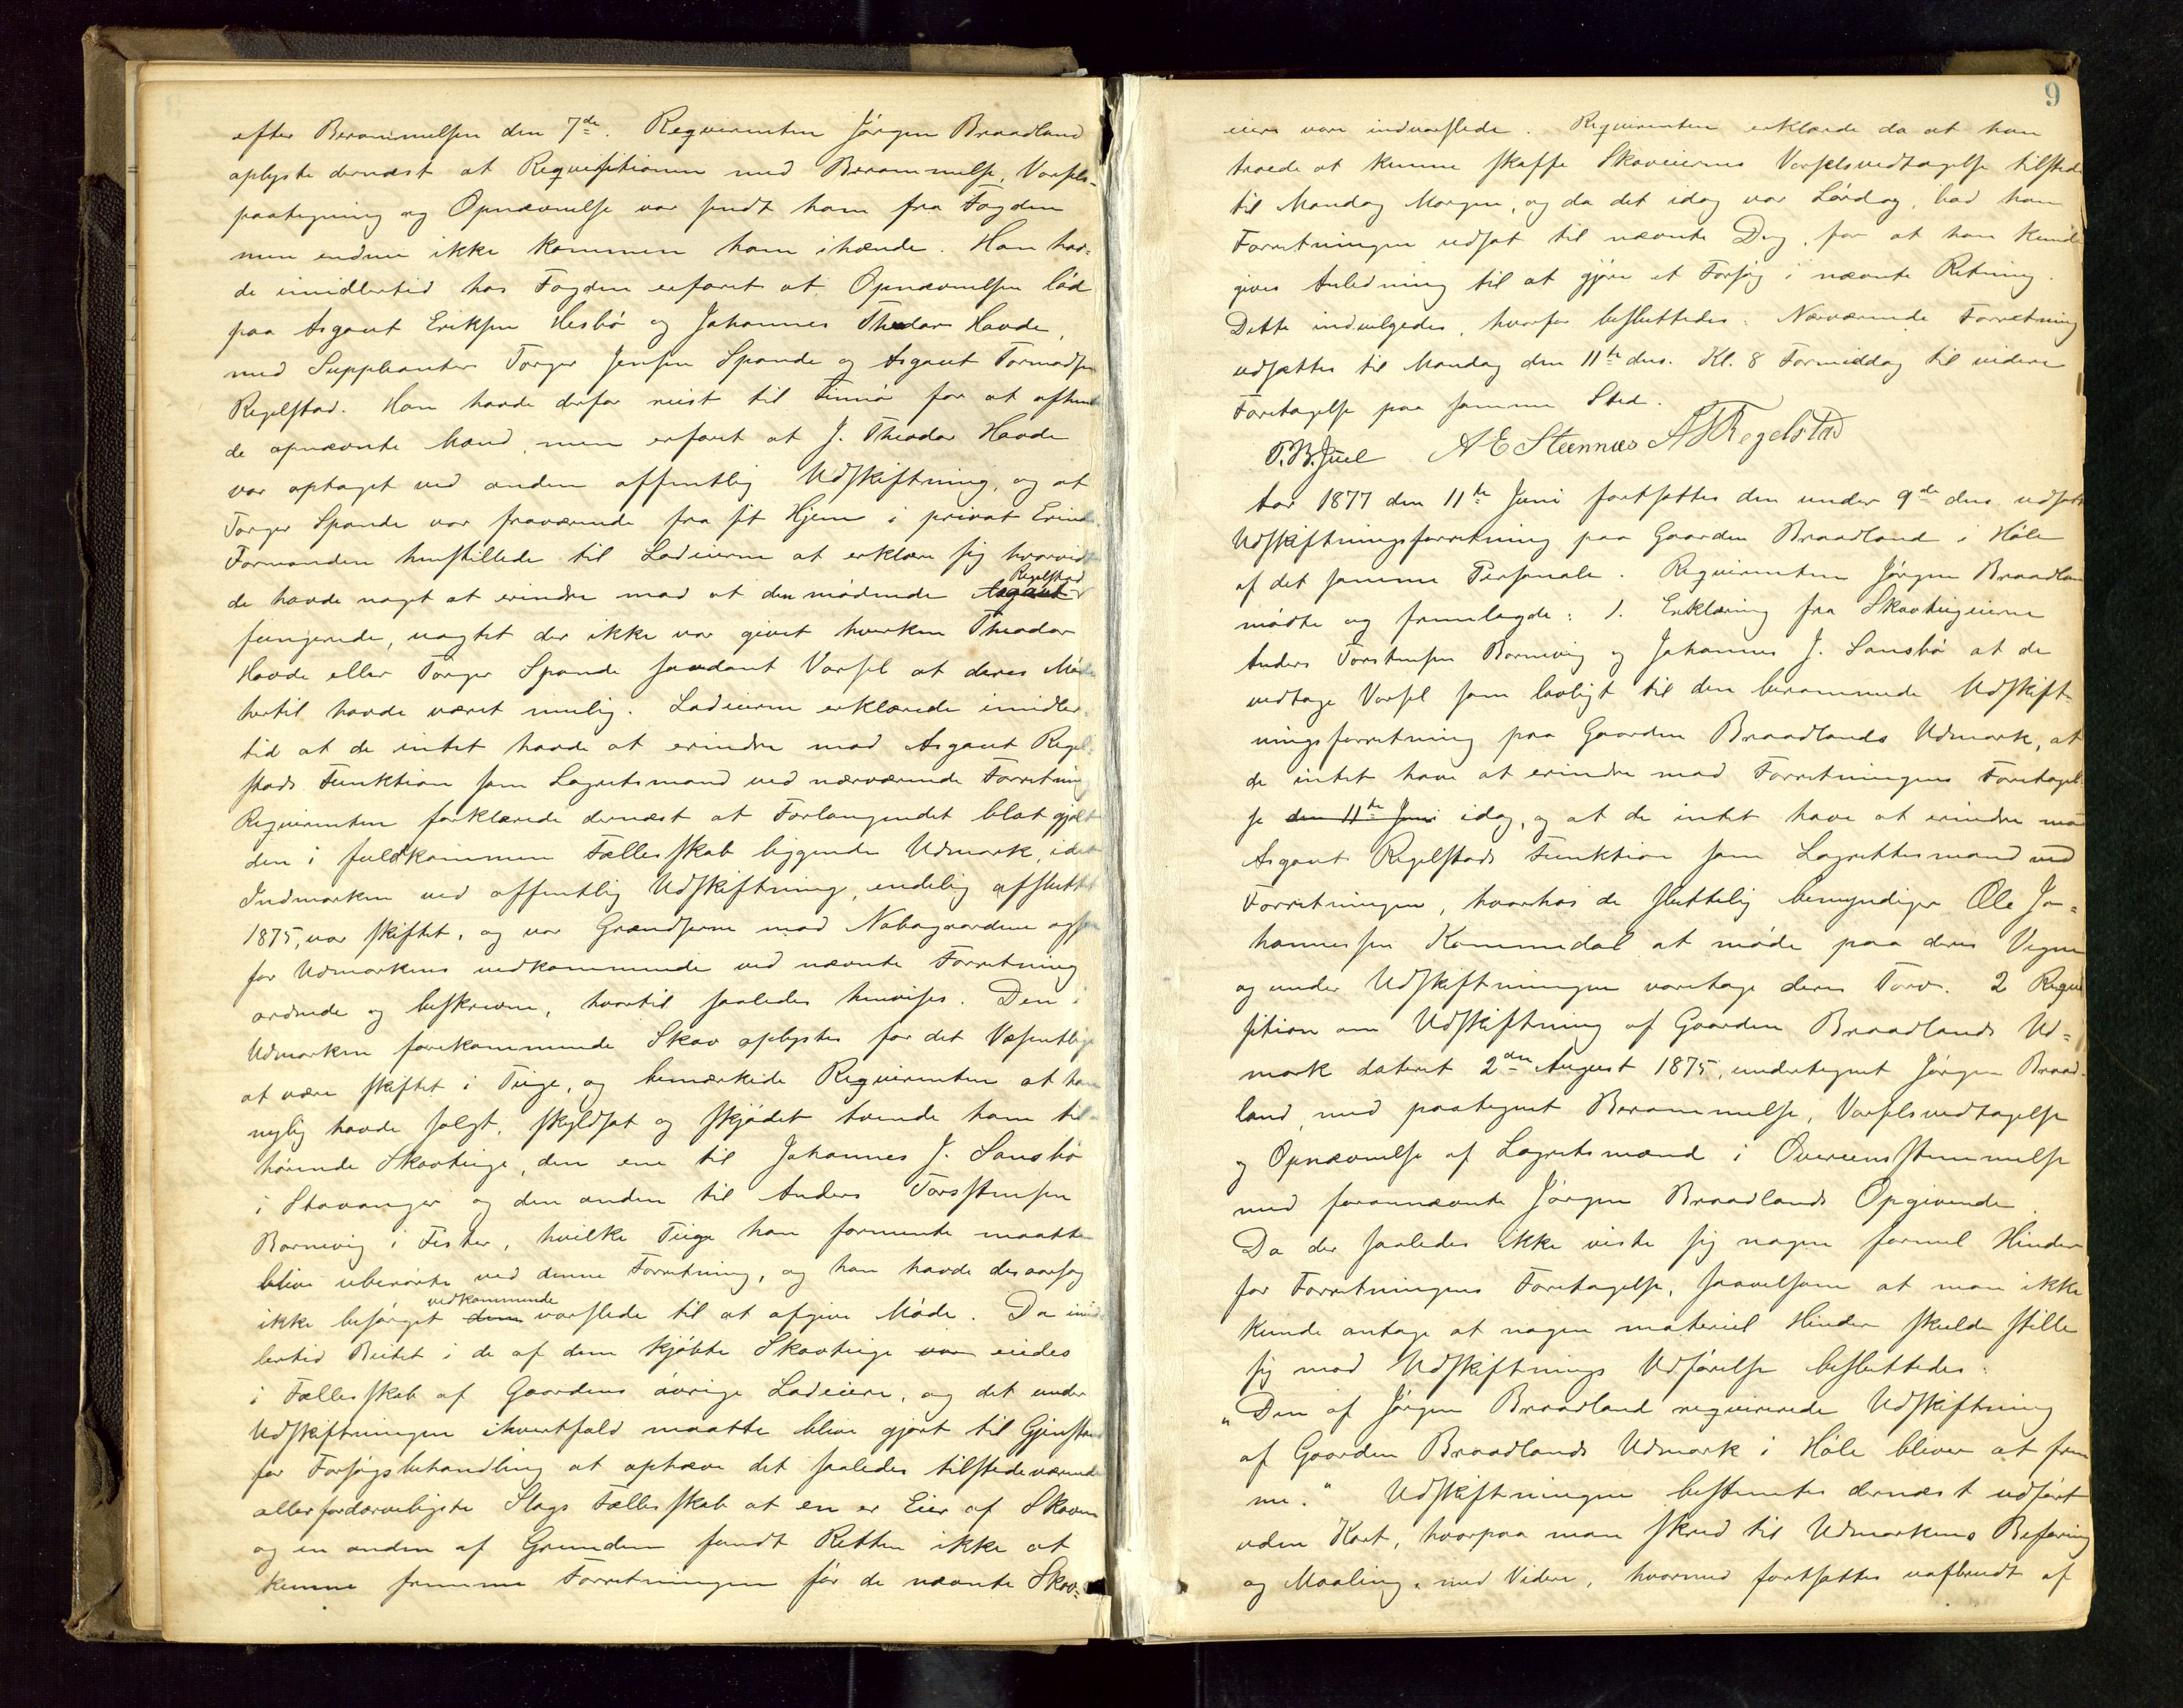 efter Berammelsen den 7de. Reqvirenten Jörgen Braadland
oplyste dernæst at Reqvisitionen med Berammelse, Varsels-
paategning og Opnævnelse var sendt ham fra Fogden
men endnu ikke kommen ham ihænde. Han hav-
de imidlertid hos Fogden erfaret at Opnævnelsen löd
paa Asgaut Eriksen Hesbö og Johannes Theodor Havde,
med Suppleanter Torger Jensen Spande og Asgaut Tormodsen
Regelstad. Han havde derfor reist til Finnö for at afhente
de opnævnte Mænd, men erfaret at J. Theodor Havde
var optaget ved anden offentlig Udskiftning, og at
Torger Spande var fraværende fra sit Hjem i privat
Formanden henstillede til Lodeierne at erklære sig hvorvidt
de havde noget at erindre mod at den mödende Asgaut Regelstad
fungerede, uagtet der ikke var givet hverken Theodor
Havde eller Torger Spande saadant Varsel at deres Möde
hertil havde været mulig. Lodeierne erklærede imidler-
tid at de intet havde at erindre mod Asgaut Regel-
stads Funktion som Lagretsmand ved nærværende Forretning
Reqvirenten forklarede dernæst at Forlangendet blot gjaldt
den i fuldkommen Fællesskab liggende Udmark, idet
Indmarken ved offentlig Udskiftning, endelig afsluttet
1875, var skiftet, og var Grændserne mod Nabogaardene ogsaa
for Udmarkens vedkommende ved nævnte Forretning
ordnede og beskrevne, hvortil saaledes henvises. Den i
Udmarken forekommende Skov oplystes for det Væsentlige
at være skiftet i Teige, og bemærkede Reqvirenten at han
nylig havde solgt, skyldsat og skjödet tvende ham til-
hörende Skovteige, den ene til Johannes J. Sansbö
i Stavanger og den anden til Anders Torstensen
Bornevig i Fister, hvilke Teige han formente maatte
blive uberörte ved denne Forretning, og han havde desaarsag
ikke besörget dem vedkommende varslede til at afgive Möde. Da imid-
lertid Beitet i de af dem kjöbte Skovteige var eiedes
i Fællesskab af Gaardens övrige Lodeiere, og det under
Udskiftningen ihvertfald maatte blive gjort til Gjenstand
for Forsögsbehandling at ophæve det saaledes tilstedeværende
allerfordærveligste Slags Fællesskab at en er Eier af Skoven
og en anden af Grunden fandt Retten ikke at
kunne fremme Forretningen för de nævnte Skov-
9
eiere vare indvarslede. Reqvirenten erklærede da at han
troede at kunne skaffe Skoveiernes Varselsvedtagelse tilstede
til Mandag Morgen, og da det idag var Lördag, bad han
Forretningen udsat til nævnte Dag, for at han kunde
gives Anledning til at gjöre et Forsög i nævnte Retning.
Dette indvilgedes, hvorfor besluttedes: Nærværende Forretning
udsættes til Mandag den 11te dns. Kl. 8 Formiddag til videre
Foretagelse paa samme Sted.
T.B. Juel A E Steennæs A T Regelstad
Aar 1877 den 11te Juni fortsattes den under 9de dns. udsatte
Udskiftningsforretning paa Gaarden Braadland i Höle
af det samme Personale. Reqvirenten Jörgen Braadland
mödte og fremlagde: 1. Erklæring fra Skovteigeierne
Anders Torstensen Bornevig og Johannes J. Sansbö at de
vedtage Varsel som lovligt til den berammede Udskift-
ningsforretning paa Gaarden Braadlands Udmark, at
de intet have at erindre mod Forretningens Foretagel-
se den 11te Juni idag, og at de intet have at erindre mod
Asgaut Regelstads Funktion som Lagrettesmand ved
Forretningen, hvorhos de sluttelig bemyndiger Ole Jo-
hannessen Kommedal at möde paa deres Vegne
og under Udskiftningen varetage deres Tarv. 2 Reqvi-
sition om Udskiftning af Gaarden Braadlands Ud-
mark dateret 2den August 1875, undertegnet Jörgen Braad-
land, med paategnet Berammelse, Varselsvedtagelse
og Opnævnelse af Lagretsmænd i Overeensstemmelse
med forannævnte Jörgen Braadlands Opgivende.
Da der saaledes ikke viste sig nogen formel Hinder
for Forretningens Foretagelse, saavelsom at man ikke
kunde antage at nogen materiel Hinder skulde stille
sig mod Udskiftnings Udförelse besluttedes:
"Den af Jörgen Braadland reqvirerede Udskiftning
af Gaarden Braadlands Udmark i Höle bliver at frem-
me." Udskiftningen bestemtes dernæst udfört
uden Kart, hvorpaa man skred til Udmarkens Befaring
og Maaling, med Videre, hvormed fortsattes uafbrudt af